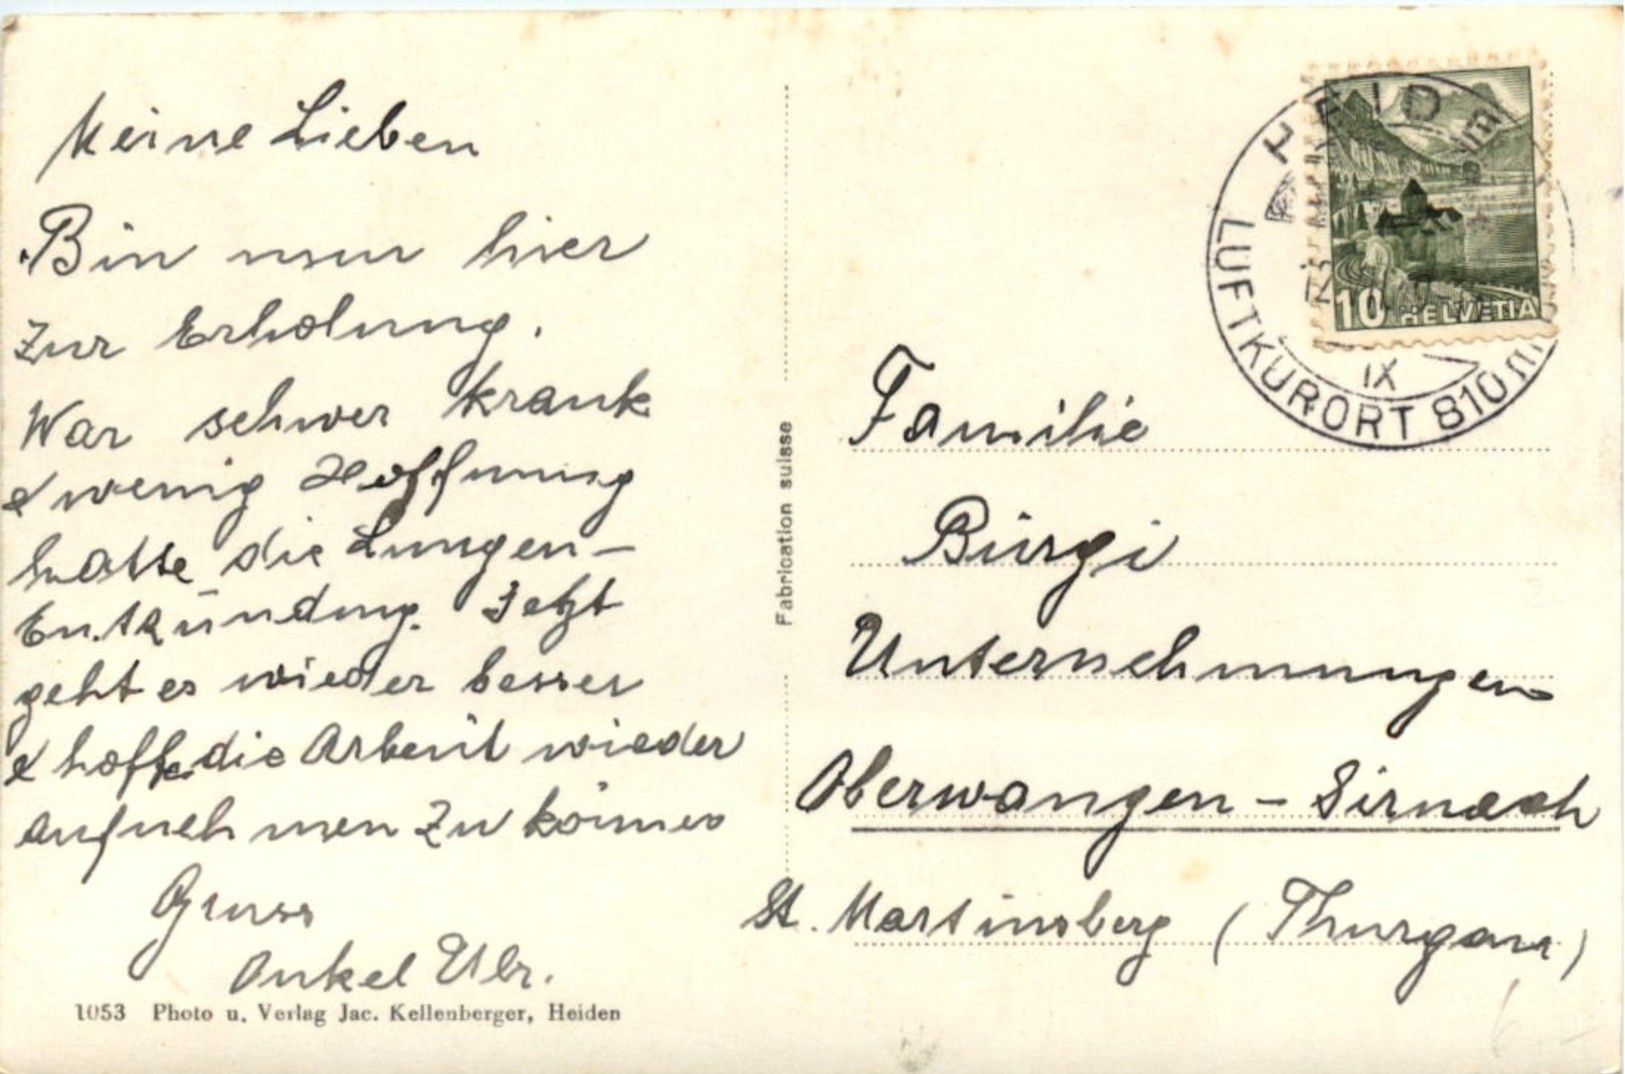 Meine Lieben
Bin nun hier
zur Erholung.
War schwer krank
& wenig Hoffnung
hatte die Lungen-
Entzündung. Jetzt
geht es wieder besser
& hoffe die Arbeit wieder
aufnehmen zu können
Gruss
Onkel Ulr.
1053 Photo u. Verlag Jac. Kellenberger, Heiden
Fabrication suisse
HEIDEN
LUFTKURORT 810 m
IX
10 HELVETIA
Familie
Bürgi
Unternehmungen
Oberwangen - Sirnach
St. Martinsberg (Thurgau)